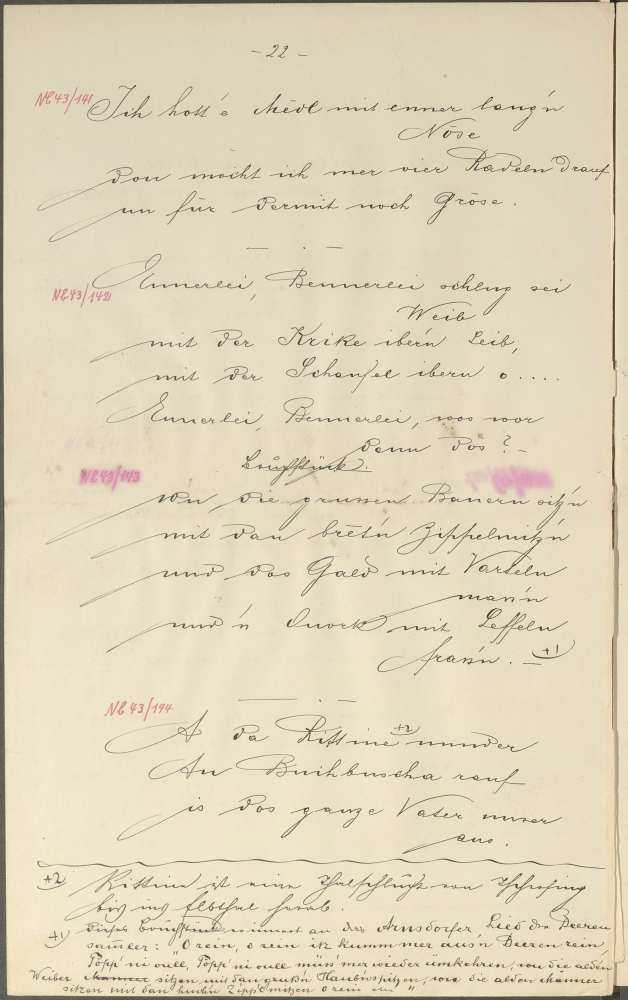 - 22 -
NL43/141
Ich hott' e Mēdl mit enner lang'n
Nōse
dou mōcht ich mer vier Radeln drauf
un für dermit noch Grōse.
NL43/142
Ennerlei, Bennerlei schlug sei
Weib
mit der Krike iber'n Leib,
mit der Schaufel ibern o....
Ennerlei, Bennerlei, wos wor
denn dōs? -
Bruchstück.
NL43/143
wu die grussen Bauern sitz'n
mit dan brēt'n Zippelmitz'n
und dos Gald mit Varteln
mass'n
und'n Quork mit Leffeln
frass'n. - +1)
NL 43/144
A da Kittine +2) nunder
An Buchbuscha rauf
is dos ganze Vater unser
aus.
+2) Kittine ist eine Thalschlucht von
bis ins Elbthal herab.
+1) Dieses Bruchstück erinnert an das Arnsdorfer Lied der Beeren
sam̄ler: "O rein, o rein itz kumm mer aus'n Beeren rein,
Töpp' ni vull, Töpp' ni vull müss mer wieder umkehren, wu die alden
Weiber sitzen mit dan grußn Haubnspitzen, wu die alden Manner
sitzen mit dan Zipplmitzen o rein